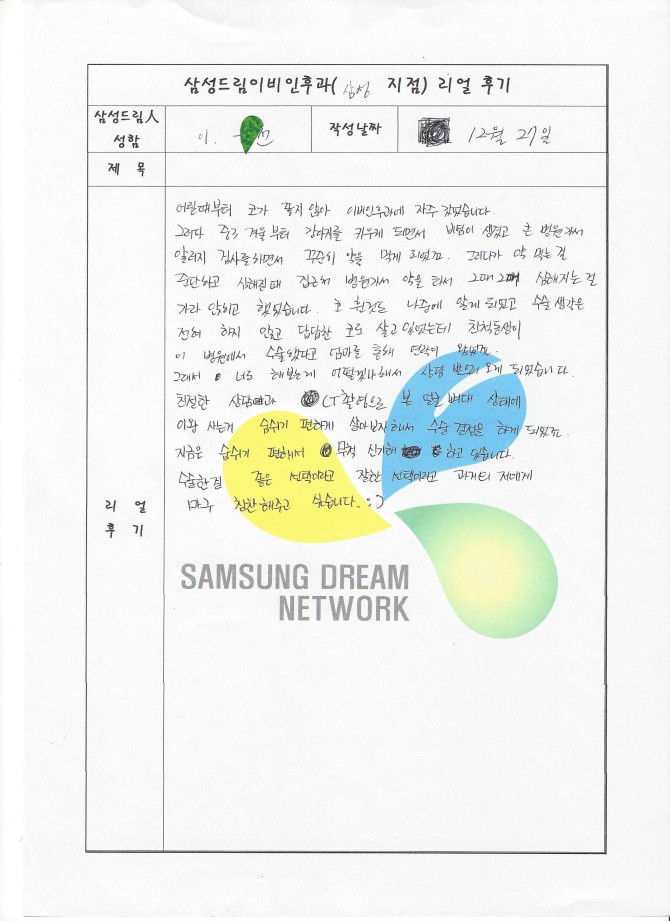 삼성드림이비인후과( 삼성 지점) 리얼 후기
삼성드림人 성함
이.
작성날짜
12월 27일
제 목
리 얼 후 기
어릴때부터 코가 좋지 않아 이비인후과에 자주 갔었습니다.
그러다 중3 겨울부터 강아지를 키우게 되면서 비염이 생겼고 큰 병원가서
알러지 검사를하면서 꾸준히 약을 먹게 되었죠. 그러다가 약 먹는걸
중단하고 심해질때 집근처 병원가서 약을 타서 그때그때 심해지는걸
가라 앉히고 했었습니다. 코 휜것도 나중에 알게 되었고 수술 생각은
전혀 하지 않고 답답한 코로 살고 있었는데 친척동생이
이 병원에서 수술했다고 엄마를 통해 연락이 왔었죠.
그래서 너도 해보는게 어떻겠냐해서 상담 받으러 오게 되었습니다.
친절한 상담과 CT촬영으로 본 얼굴 뼈대 상태에
이왕 사는거 숨쉬기 편하게 살아보자해서 수술 결정을 하게 되었죠.
지금은 숨쉬기 편해서 무척 신기해 하고 있습니다.
수술한걸 좋은 선택이라고 잘한 선택이라고 과거의 저에게
마구 칭찬해주고 싶습니다. :)
SAMSUNG DREAM
NETWORK